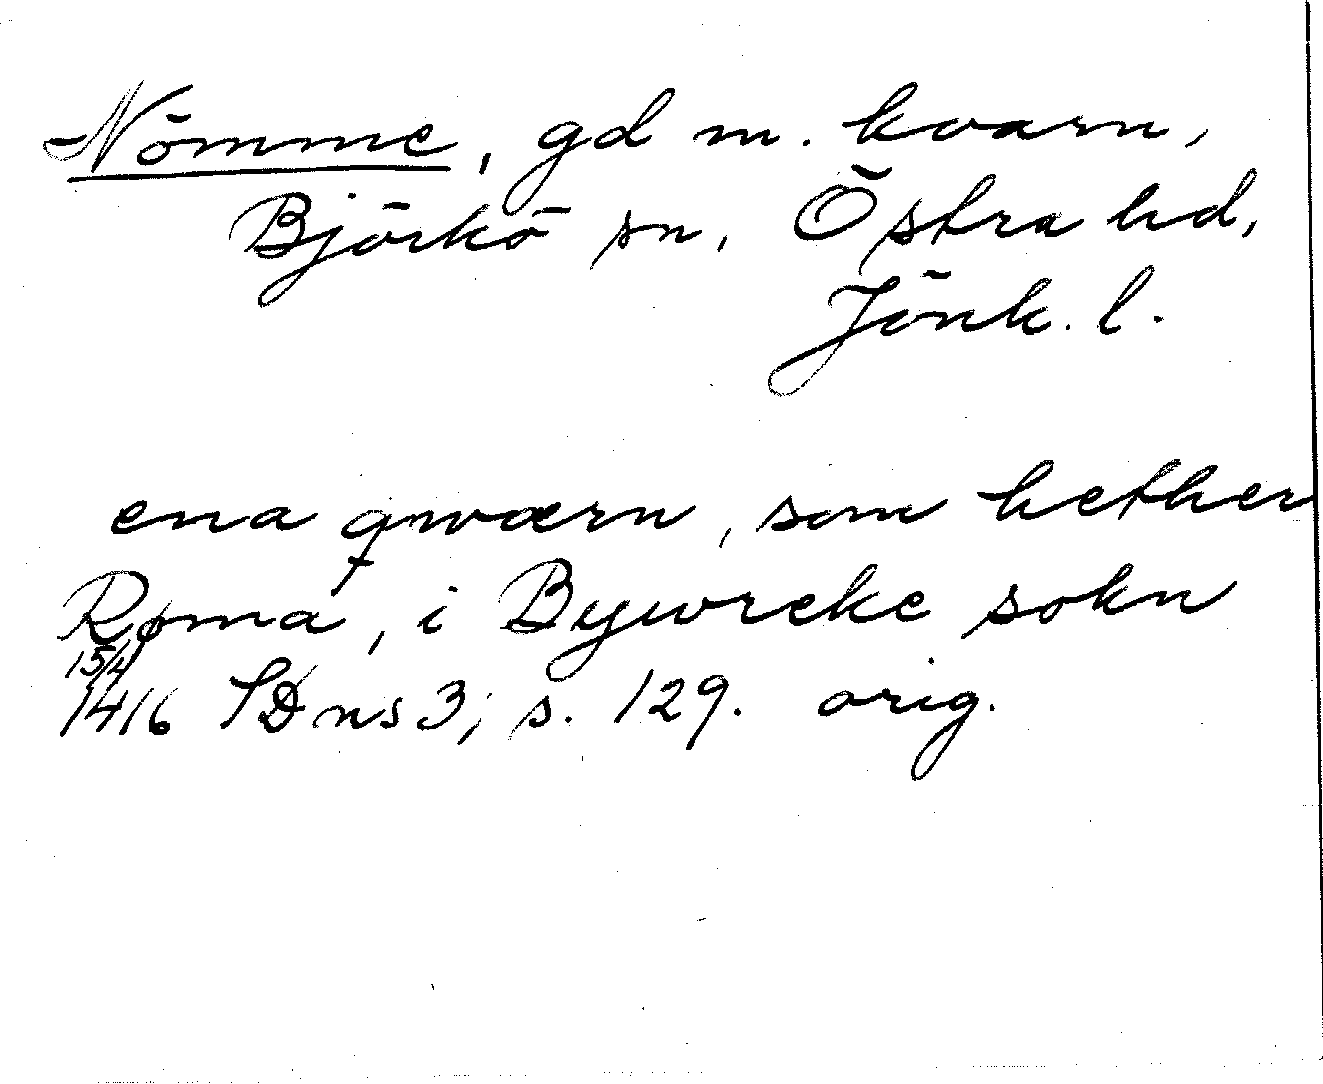 Nömme, gd m. kvarn,
Björkö sn, Östra hd,
Jönk. l.
ena qwærn, som hether
Rømá, i Bywreke sokn
15/4
1416 SD ns 3, s. 129. orig.